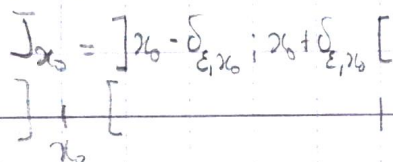 J_{x_0} = ]x_0 - δ_{ε,x_0} ; x_0 + δ_{ε,x_0} [
] [
x_0